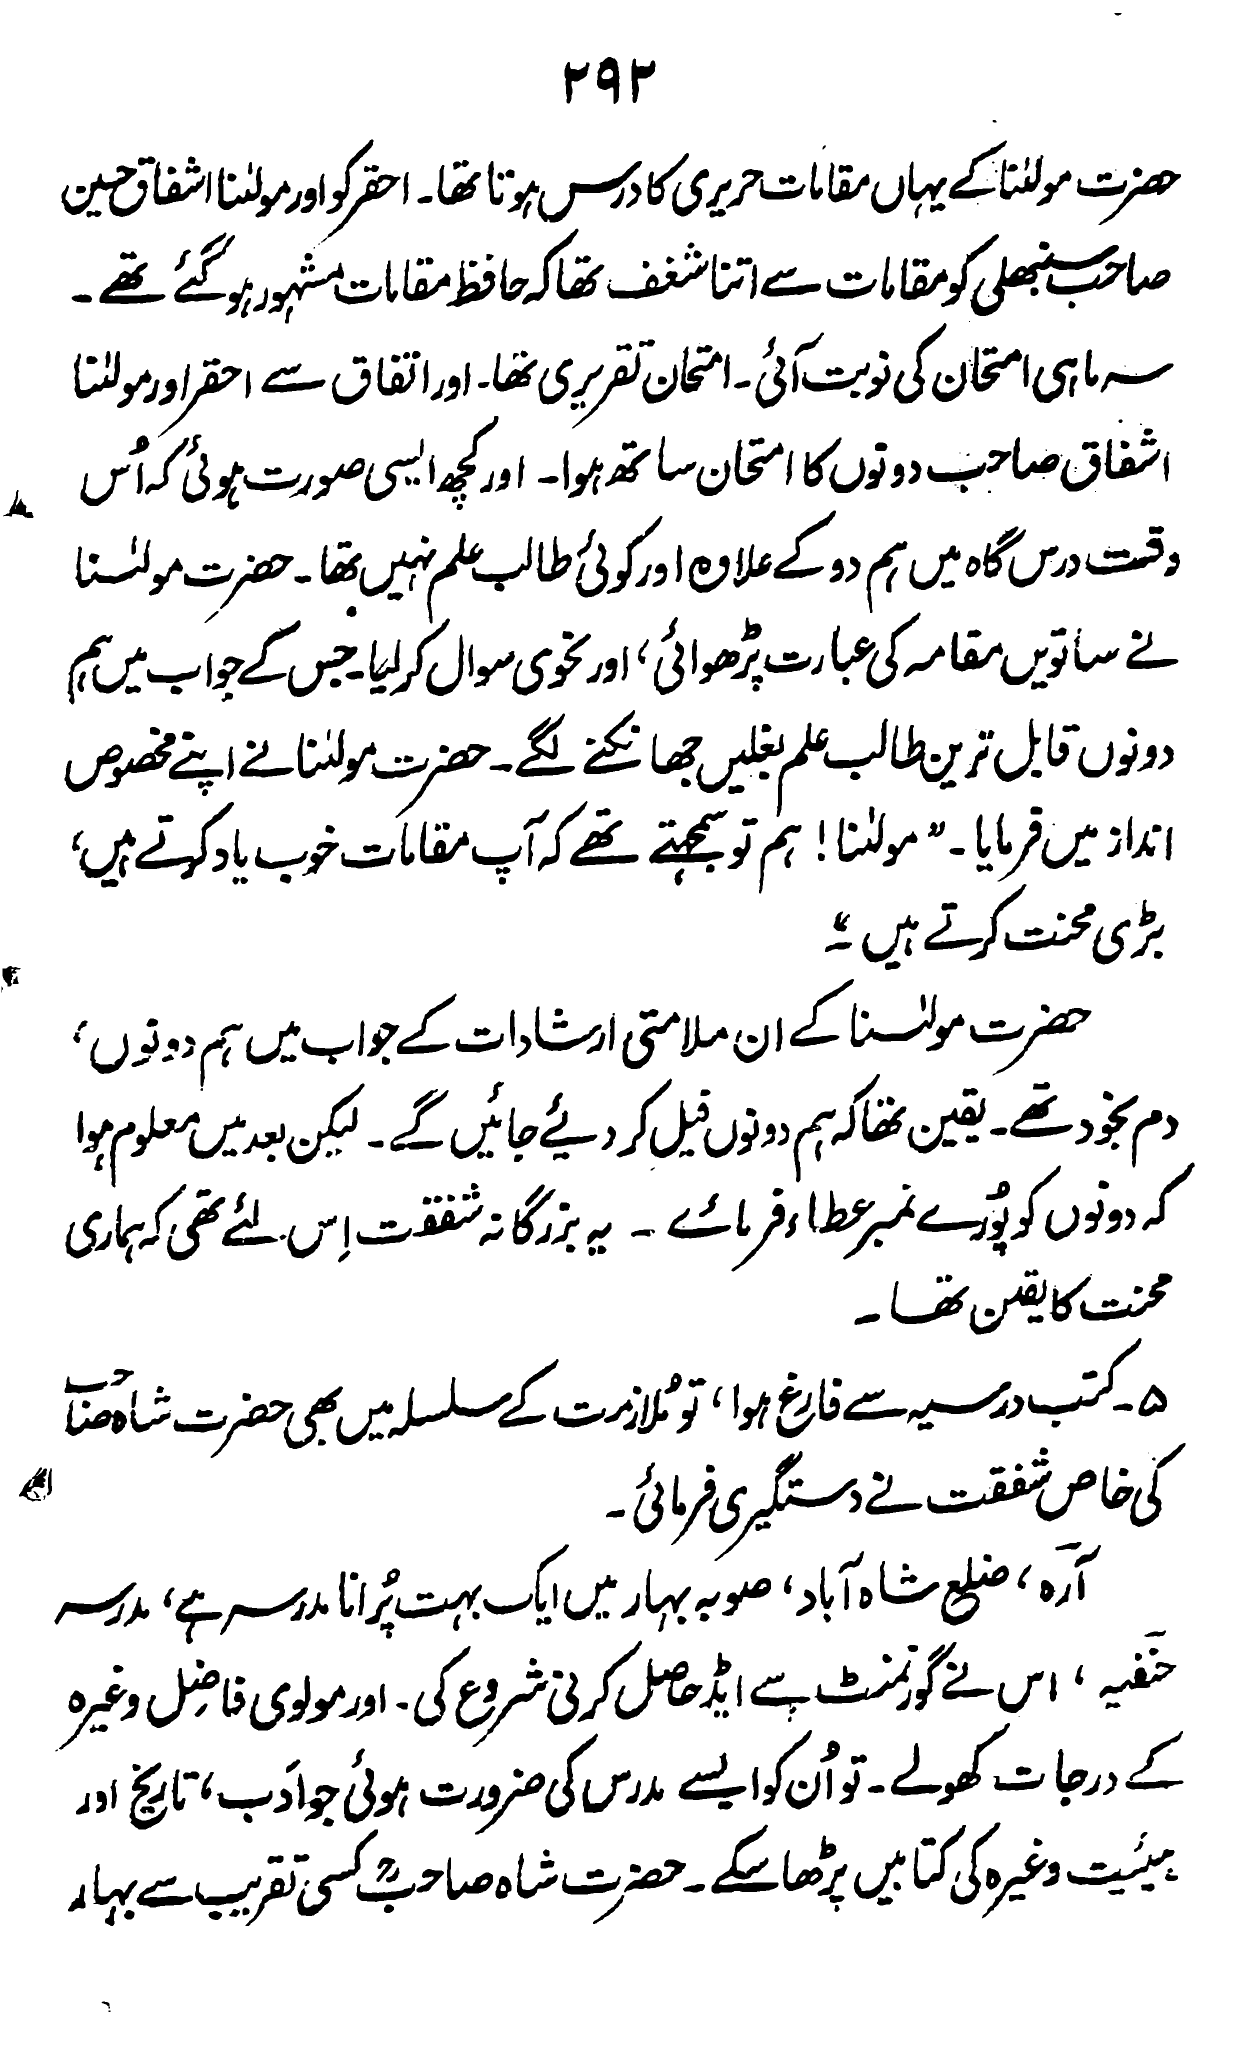 ۲۹۲
حضرت مولٰنا کے یہاں مقامات حریری کا درس ہوتا تھا۔ احقر کو اور مولٰنا اشفاق حسین
صاحب سنبھلی کو مقامات سے اتنا شغف تھا کہ حافظ مقامات مشہور ہو گئے تھے۔
سہ ماہی امتحان کی نوبت آئی۔ امتحان تقریری تھا۔ اور اتفاق سے احقر اور مولٰنا
اشفاق صاحب دونوں کا امتحان ساتھ ہوا۔ اور کچھ ایسی صورت ہوئی کہ اُس
وقت درس گاہ میں ہم دو کے علاوہ اور کوئی طالب علم نہیں تھا۔ حضرت مولٰنا
نے ساتویں مقامہ کی عبارت پڑھوائی، اور نحوی سوال کر لیا۔ جس کے جواب میں ہم
دونوں قابل ترین طالب علم بغلیں جھانکنے لگے۔ حضرت مولٰنا نے اپنے مخصوص
انداز میں فرمایا۔ “مولٰنا! ہم تو سمجھتے تھے کہ آپ مقامات خوب یاد کرتے ہیں،
بڑی محنت کرتے ہیں۔”
حضرت مولٰنا کے ان ملامتی ارشادات کے جواب میں ہم دونوں،
دم بخود تھے۔ یقین تھا کہ ہم دونوں فیل کر دیئے جائیں گے۔ لیکن بعد میں معلوم ہوا
کہ دونوں کو پُورے نمبر عطاء فرمائے۔ یہ بزرگانہ شفقت اِس لئے تھی کہ ہماری
محنت کا یقین تھا۔
۵۔ کتب درسیہ سے فارغ ہوا، تو مُلازمت کے سلسلہ میں بھی حضرت شاہ صاحب
کی خاص شفقت نے دستگیری فرمائی۔
آرہ، ضلع شاہ آباد، صوبہ بہار میں ایک بہت پُرانا مدرسہ ہے، مدرسہ
حنفیہ، اس نے گورنمنٹ سے ایڈ حاصل کرنی شروع کی۔ اور مولوی فاضِل وغیرہ
کے درجات کھولے۔ تو اُن کو ایسے مدرس کی ضرورت ہوئی جو اَدب، تاریخ اور
ہیئیت وغیرہ کی کتابیں پڑھا سکے۔ حضرت شاہ صاحبؒ کسی تقریب سے بہار